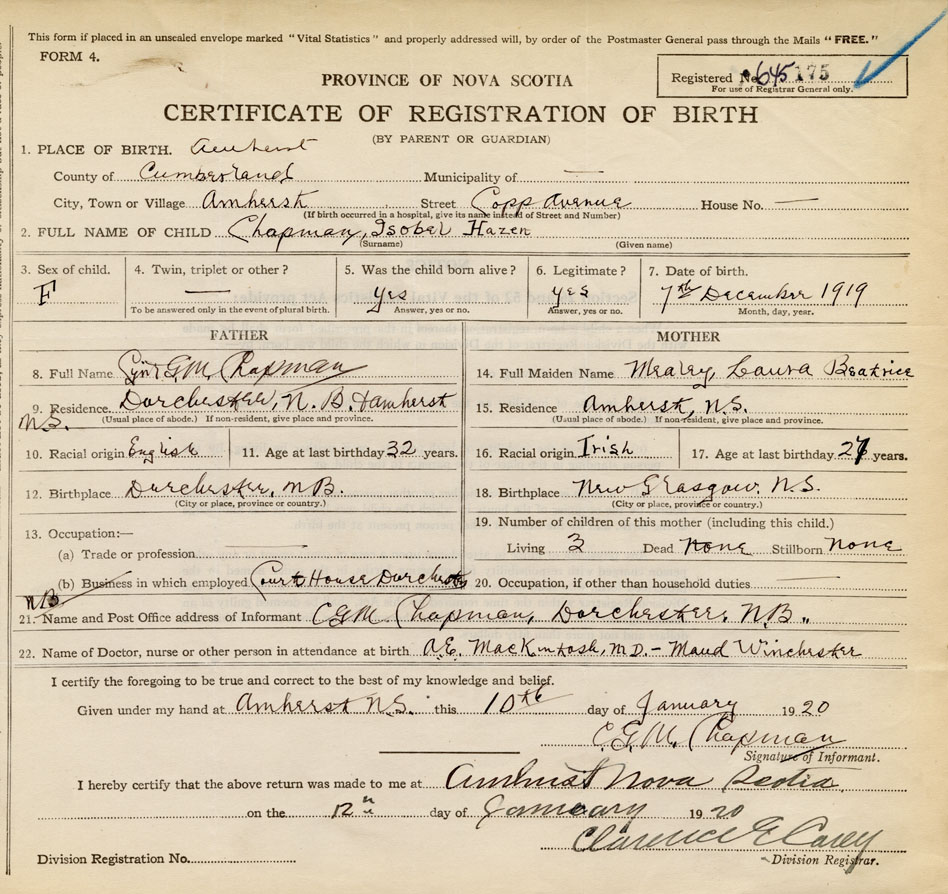 This form if placed in an unsealed envelope marked "Vital Statistics" and properly addressed will, by order of the Postmaster General pass through the Mails "FREE."
FORM 4.
Registered No. 645 175
For use of Registrar General only.
PROVINCE OF NOVA SCOTIA
CERTIFICATE OF REGISTRATION OF BIRTH
(BY PARENT OR GUARDIAN)
1. PLACE OF BIRTH. Amherst
County of Cumberland Municipality of —
City, Town or Village Amherst Street Copp Avenue House No. —
(If birth occurred in a hospital, give its name instead of Street and Number)
2. FULL NAME OF CHILD Chapman, Isobel Hazen
(Surname) (Given name)
3. Sex of child. 4. Twin, triplet or other? 5. Was the child born alive? 6. Legitimate? 7. Date of birth.
F — yes yes 7th December 1919
To be answered only in the event of plural birth. Answer, yes or no. Answer, yes or no. Month, day, year.
FATHER MOTHER
8. Full Name G M Chapman 14. Full Maiden Name Mealey, Laura Beatrice
9. Residence Dorchester, N.B. & Amherst 15. Residence Amherst, N.S.
N.S. (Usual place of abode.) If non-resident, give place and province. (Usual place of abode.) If non-resident, give place and province.
10. Racial origin English 11. Age at last birthday 32 years. 16. Racial origin Irish 17. Age at last birthday 27 years.
12. Birthplace Dorchester, N.B. 18. Birthplace New Glasgow, N.S.
(City or place, province or country.) (City or place, province or country.)
13. Occupation:— 19. Number of children of this mother (including this child.)
(a) Trade or profession — Living 3 Dead None Stillborn None
(b) Business in which employed Court House Dorchester 20. Occupation, if other than household duties —
NB
21. Name and Post Office address of Informant C G M Chapman, Dorchester, N.B.
22. Name of Doctor, nurse or other person in attendance at birth A.E. MacKintosh, M.D. - Maud Winchester
I certify the foregoing to be true and correct to the best of my knowledge and belief.
Given under my hand at Amherst N.S. this 10th day of January 1920
C.G.M. Chapman
Signature of Informant.
I hereby certify that the above return was made to me at Amherst Nova Scotia
on the 12th day of January 1920
Clarence E Carey
Division Registration No. Division Registrar.